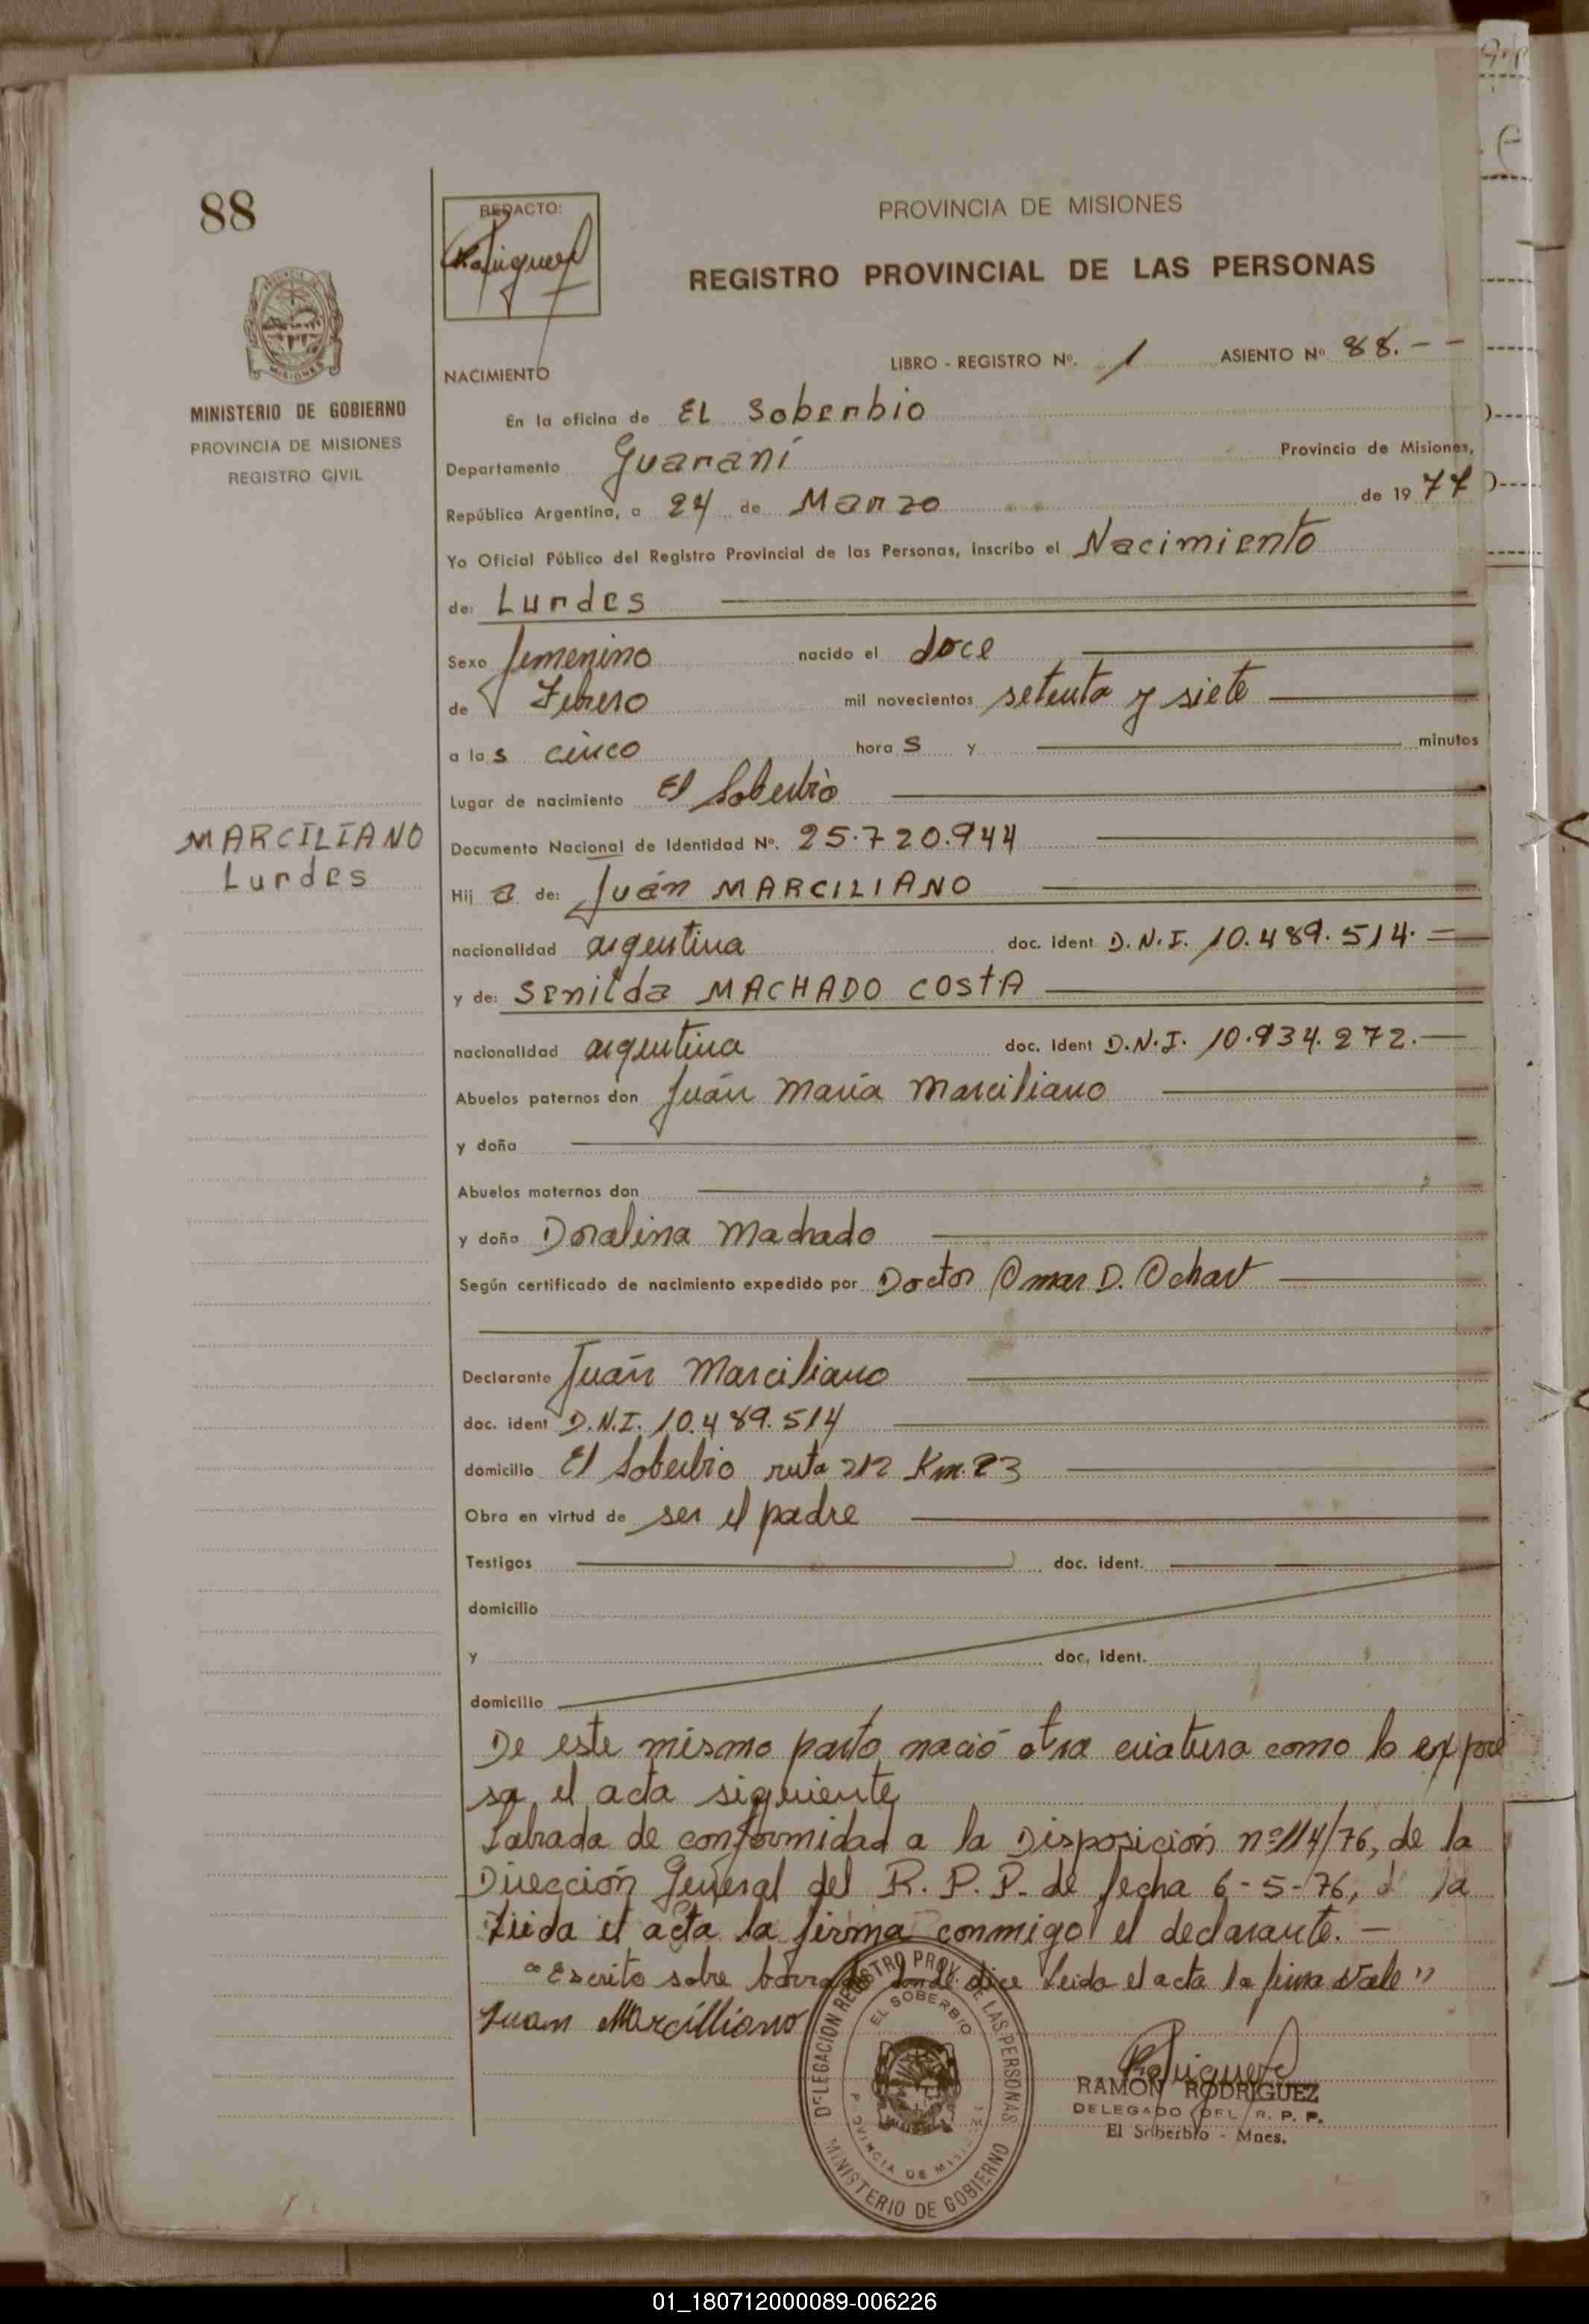 88
REDACTO:
PROVINCIA DE MISIONES
REGISTRO PROVINCIAL DE LAS PERSONAS
LIBRO - REGISTRO Nº. 1 ASIENTO Nº 88.--
NACIMIENTO
MINISTERIO DE GOBIERNO
PROVINCIA DE MISIONES
REGISTRO CIVIL
En la oficina de EL Soberbio
Departamento Guaraní Provincia de Misiones,
República Argentina, a 24 de Marzo de 1977
Yo Oficial Público del Registro Provincial de las Personas, inscribo el Nacimiento
de: Lurdes
Sexo femenino nacido el doce
de Febrero mil novecientos setenta y siete
a las cinco horas y minutos
Lugar de nacimiento El Soberbio
MARCILIANO
Lurdes
Documento Nacional de Identidad Nº. 25.720.944
Hija de: Juán MARCILIANO
nacionalidad argentina doc. ident D.N.I. 10.489.514.=
y de: Senilda MACHADO COSTA
nacionalidad argentina doc. ident D.N.I. 10.934.272.—
Abuelos paternos don Juán María Marciliano
y doña
Abuelos maternos don
y doña Doralina Machado
Según certificado de nacimiento expedido por Doctor Omar D. Ochart
Declarante Juán Marciliano
doc. ident D.N.I. 10.489.514
domicilio El Soberbio ruta 212 Km. 23
Obra en virtud de ser el padre
Testigos doc. ident.
domicilio
y doc. ident.
domicilio
De este mismo parto nació otra criatura como lo expre
sa el acta siguiente
Labrada de conformidad a la Disposición nº 114/76, de la
Dirección General del R. P. P. de fecha 6-5-76, la
Leida el acta la firma conmigo el declarante.—
"Escrito sobre borrado donde dice Leida el acta la firma Vale"
Juan Marcilliano
DELEGACION REGISTRO PROV. DE LAS PERSONAS
EL SOBERBIO
PROVINCIA DE MISIONES
MINISTERIO DE GOBIERNO
RAMON RODRIGUEZ
DELEGADO DEL R. P. P.
El Soberbio - Mnes.
01_180712000089-006226